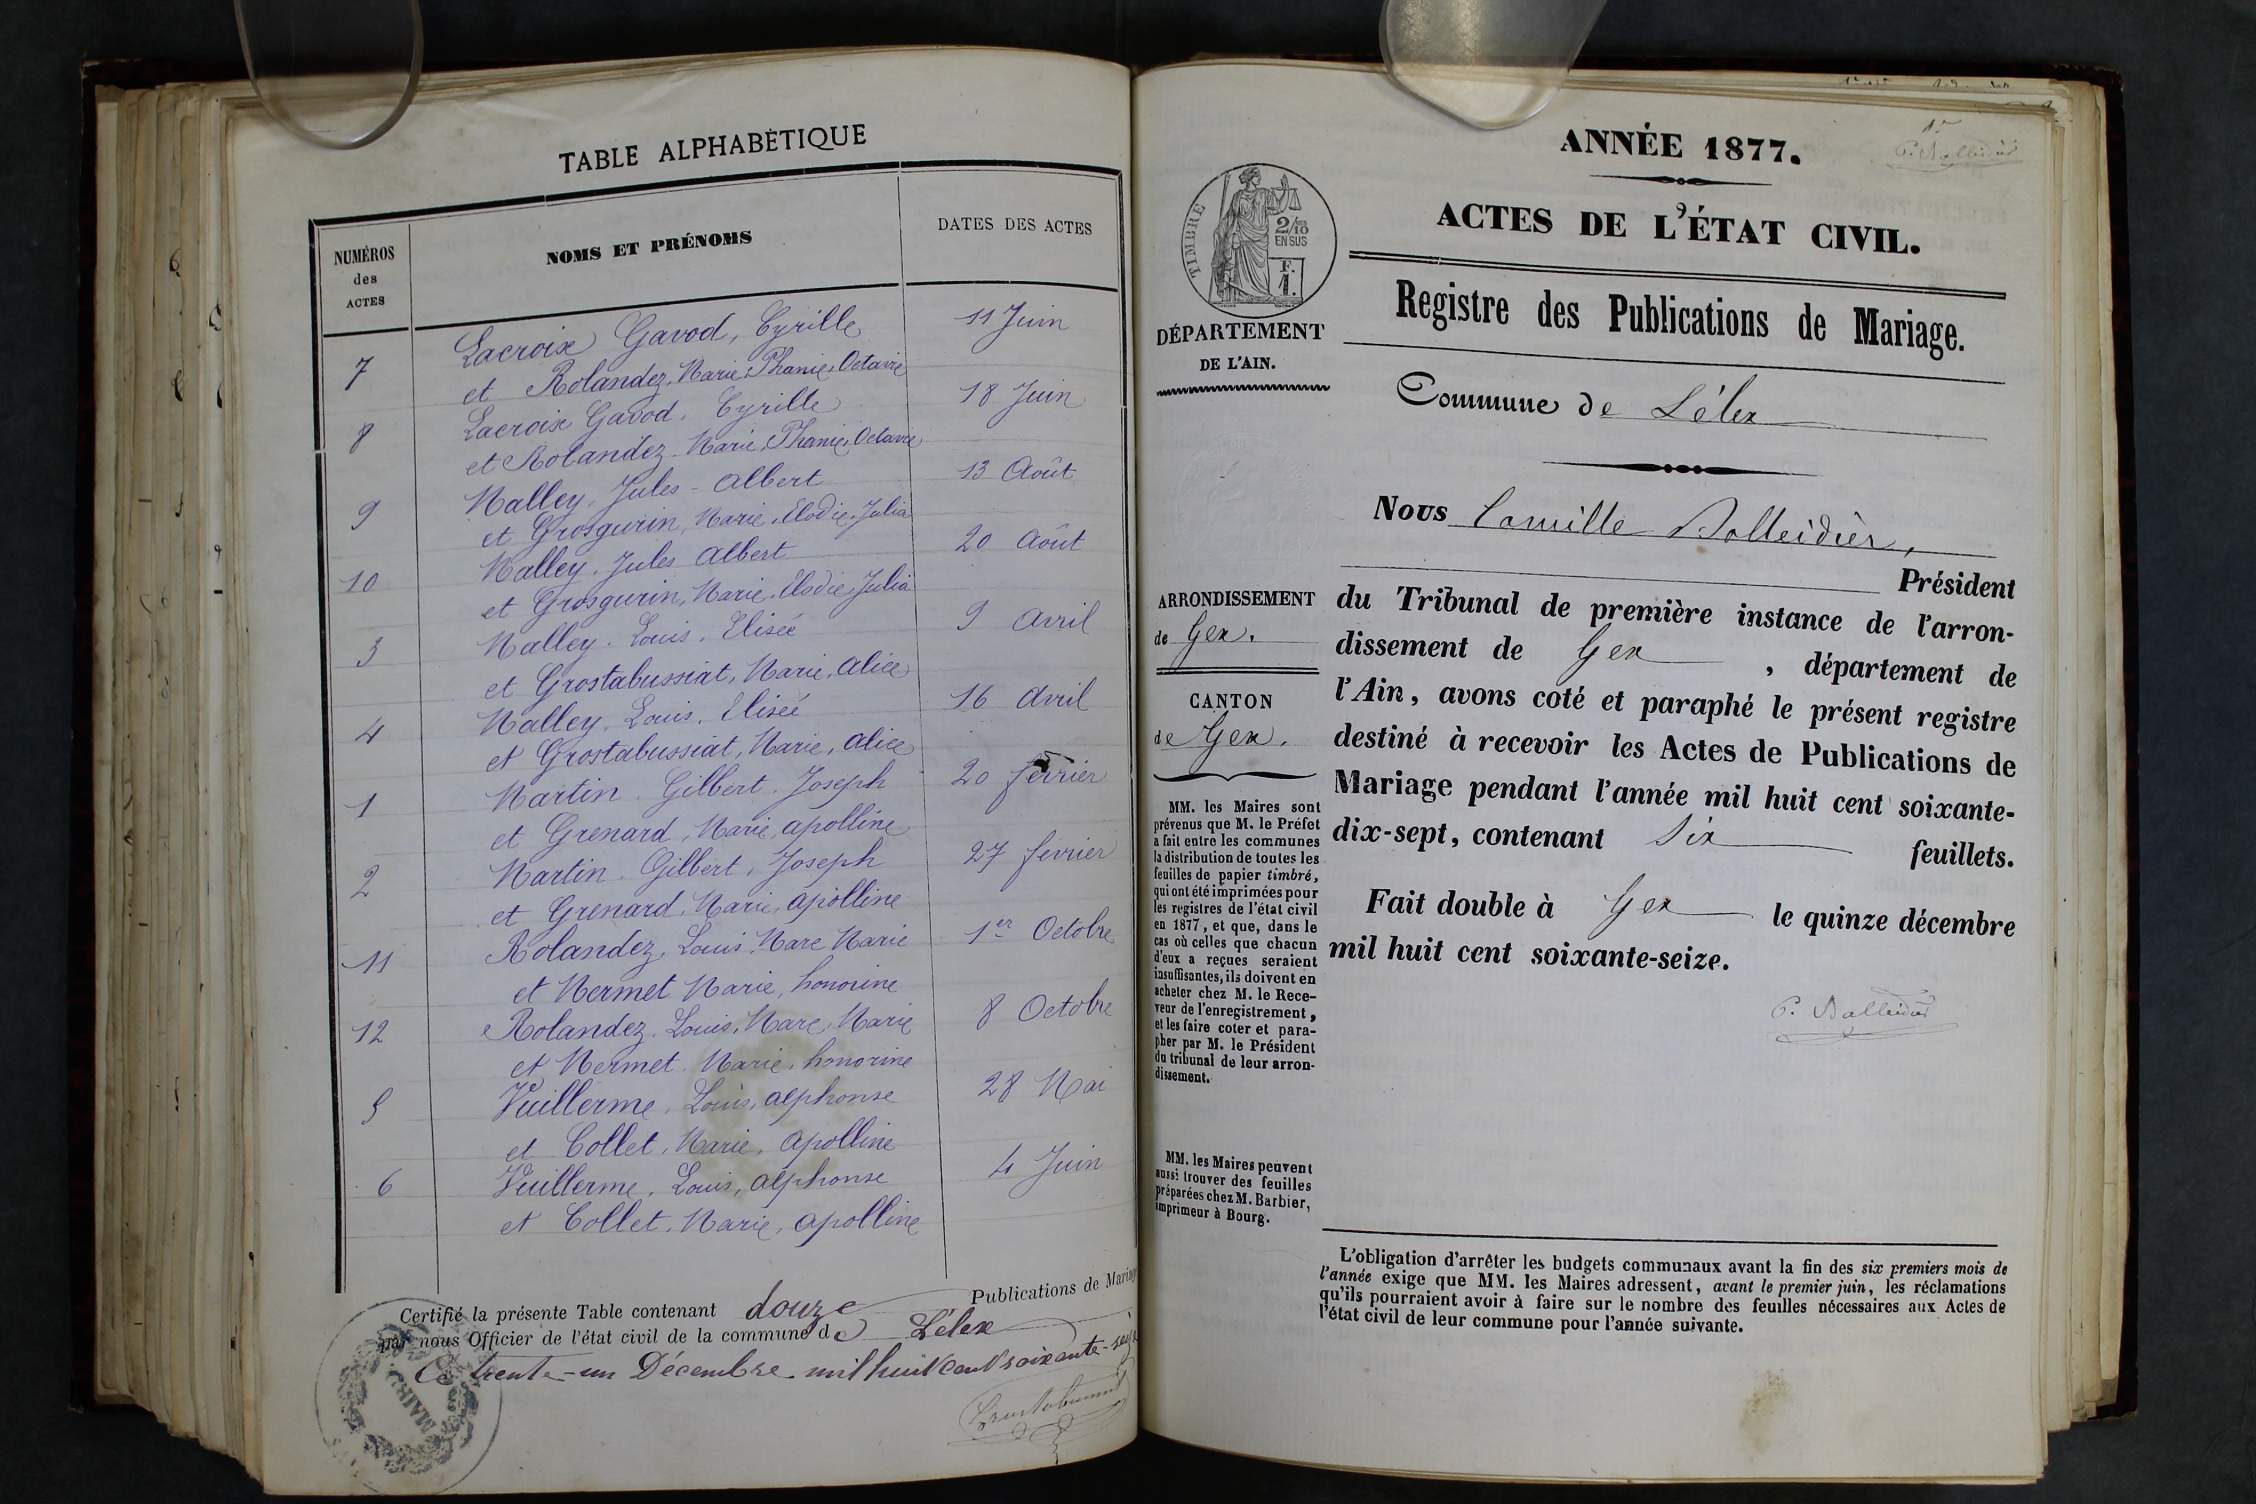 TABLE ALPHABÉTIQUE
NUMÉROS
des
ACTES
NOMS ET PRÉNOMS
DATES DES ACTES
7 Lacroix Gavod, Cyrille 11 Juin
et Rolandez, Marie, Phanie, Octavie
8 Lacroix Gavod, Cyrille 18 Juin
et Rolandez Marie, Phanie, Octavie
9 Malley, Jules - Albert 13 Août
et Grosgurin, Marie, Elodie, Julia
10 Malley, Jules Albert 20 Août
et Grosgurin, Marie, Elodie, Julia
3 Malley, Louis, Elisée 9 Avril
et Grostabussiat, Marie, Alice
4 Malley, Louis, Elisée 16 Avril
et Grostabussiat, Marie, Alice
1 Martin, Gilbert, Joseph 20 février
et Grenard, Marie, apolline
2 Martin, Gilbert, Joseph 27 février
et Grenard, Marie, apolline
11 Rolandez, Louis, Marc Marie 1er Octobre
et Mermet Marie, honorine
12 Rolandez, Louis, Marc, Marie 8 Octobre
et Mermet Marie, honorine
5 Vuillerme, Louis, alphonse 28 Mai
et Collet, Marie, apolline
6 Vuillerme, Louis, alphonse 4 Juin
et Collet, Marie, apolline
Certifié la présente Table contenant douze Publications de Mariage
par nous Officier de l'état civil de la commune de Lélex
Ce trente-un Décembre mil huit cent soixante-seize
Grostabussiat
MAIRIE
ANNÉE 1877.
1er
C. Balleidier
ACTES DE L'ÉTAT CIVIL.
TIMBRE
2/10
EN SUS
F.
1.
DÉPARTEMENT
DE L'AIN.
Registre des Publications de Mariage.
Commune de Lélex
Nous Camille Balleidier,
Président
du Tribunal de première instance de l'arron-
dissement de Gex, département de
l'Ain, avons coté et paraphé le présent registre
destiné à recevoir les Actes de Publications de
Mariage pendant l'année mil huit cent soixante-
dix-sept, contenant Six feuillets.
Fait double à Gex le quinze décembre
mil huit cent soixante-seize.
C. Balleidier
ARRONDISSEMENT
de Gex.
CANTON
de Gex.
MM. les Maires sont
prévenus que M. le Préfet
a fait entre les communes
la distribution de toutes les
feuilles de papier timbré,
qui ont été imprimées pour
les registres de l'état civil
en 1877, et que, dans le
cas où celles que chacun
d'eux a reçues seraient
insuffisantes, ils doivent en
acheter chez M. le Rece-
veur de l'enregistrement,
et les faire coter et para-
pher par M. le Président
du tribunal de leur arron-
dissement.
MM. les Maires peuvent
aussi trouver des feuilles
préparées chez M. Barbier,
imprimeur à Bourg.
L'obligation d'arrêter les budgets communaux avant la fin des six premiers mois de
l'année exige que MM. les Maires adressent, avant le premier juin, les réclamations
qu'ils pourraient avoir à faire sur le nombre des feuilles nécessaires aux Actes de
l'état civil de leur commune pour l'année suivante.